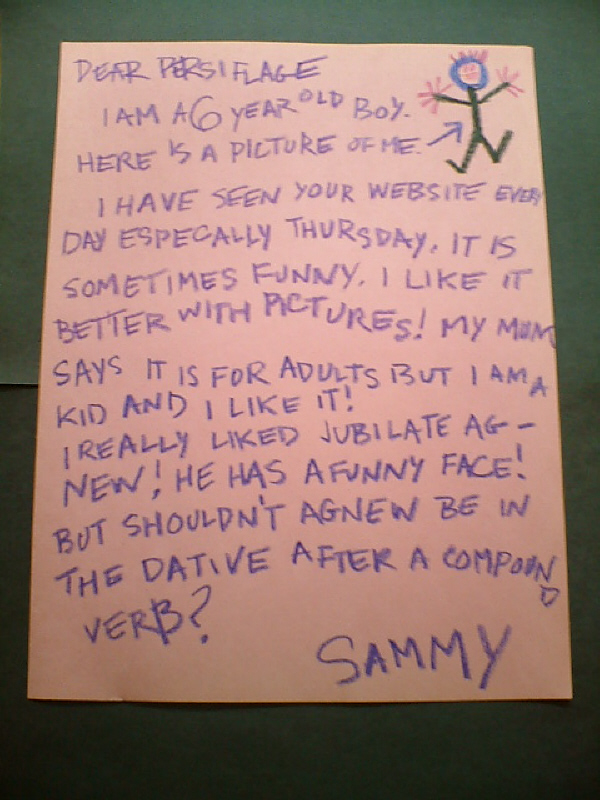 DEAR PERSIFLAGE
I AM A 6 YEAR OLD BOY.
HERE IS A PICTURE OF ME.
I HAVE SEEN YOUR WEBSITE EVERY
DAY ESPECALLY THURSDAY. IT IS
SOMETIMES FUNNY. I LIKE IT
BETTER WITH PICTURES! MY MUM
SAYS IT IS FOR ADULTS BUT I AM A
KID AND I LIKE IT!
I REALLY LIKED JUBILATE AG-
NEW! HE HAS A FUNNY FACE!
BUT SHOULDN'T AGNEW BE IN
THE DATIVE AFTER A COMPOUND
VERB?
SAMMY